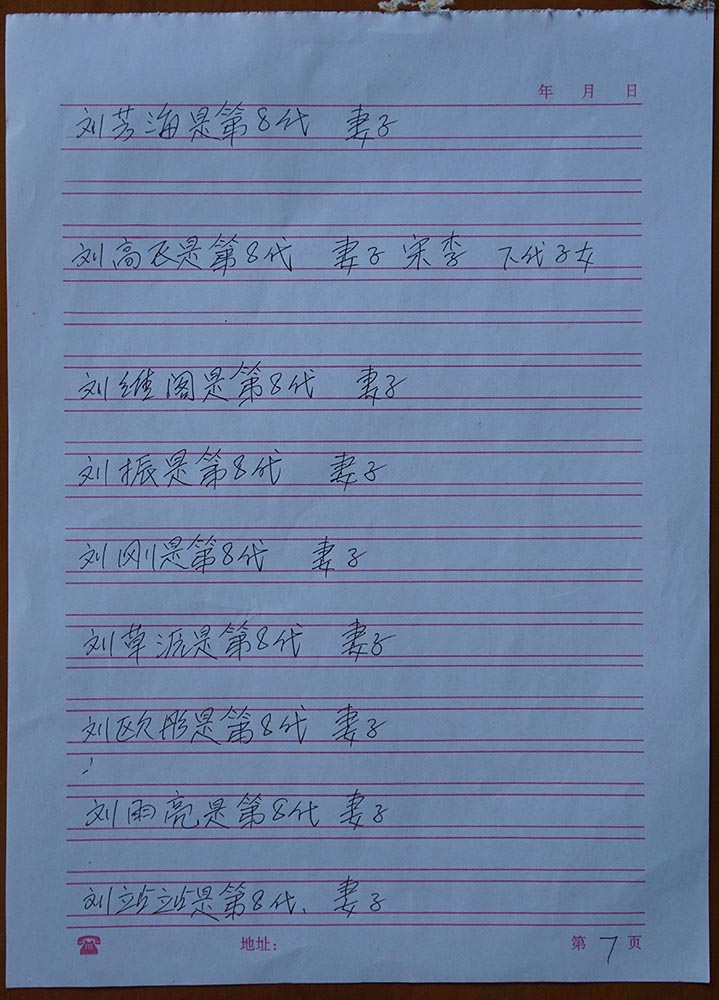 年 月 日
刘芳海是第8代 妻子
刘高飞是第8代 妻子 宋李 下代子女
刘维阁是第8代 妻子
刘振是第8代 妻子
刘刚是第8代 妻子
刘草派是第8代 妻子
刘欧彤是第8代 妻子
刘雨亮是第8代 妻子
刘站站是第8代、妻子
地址：
第 7 页